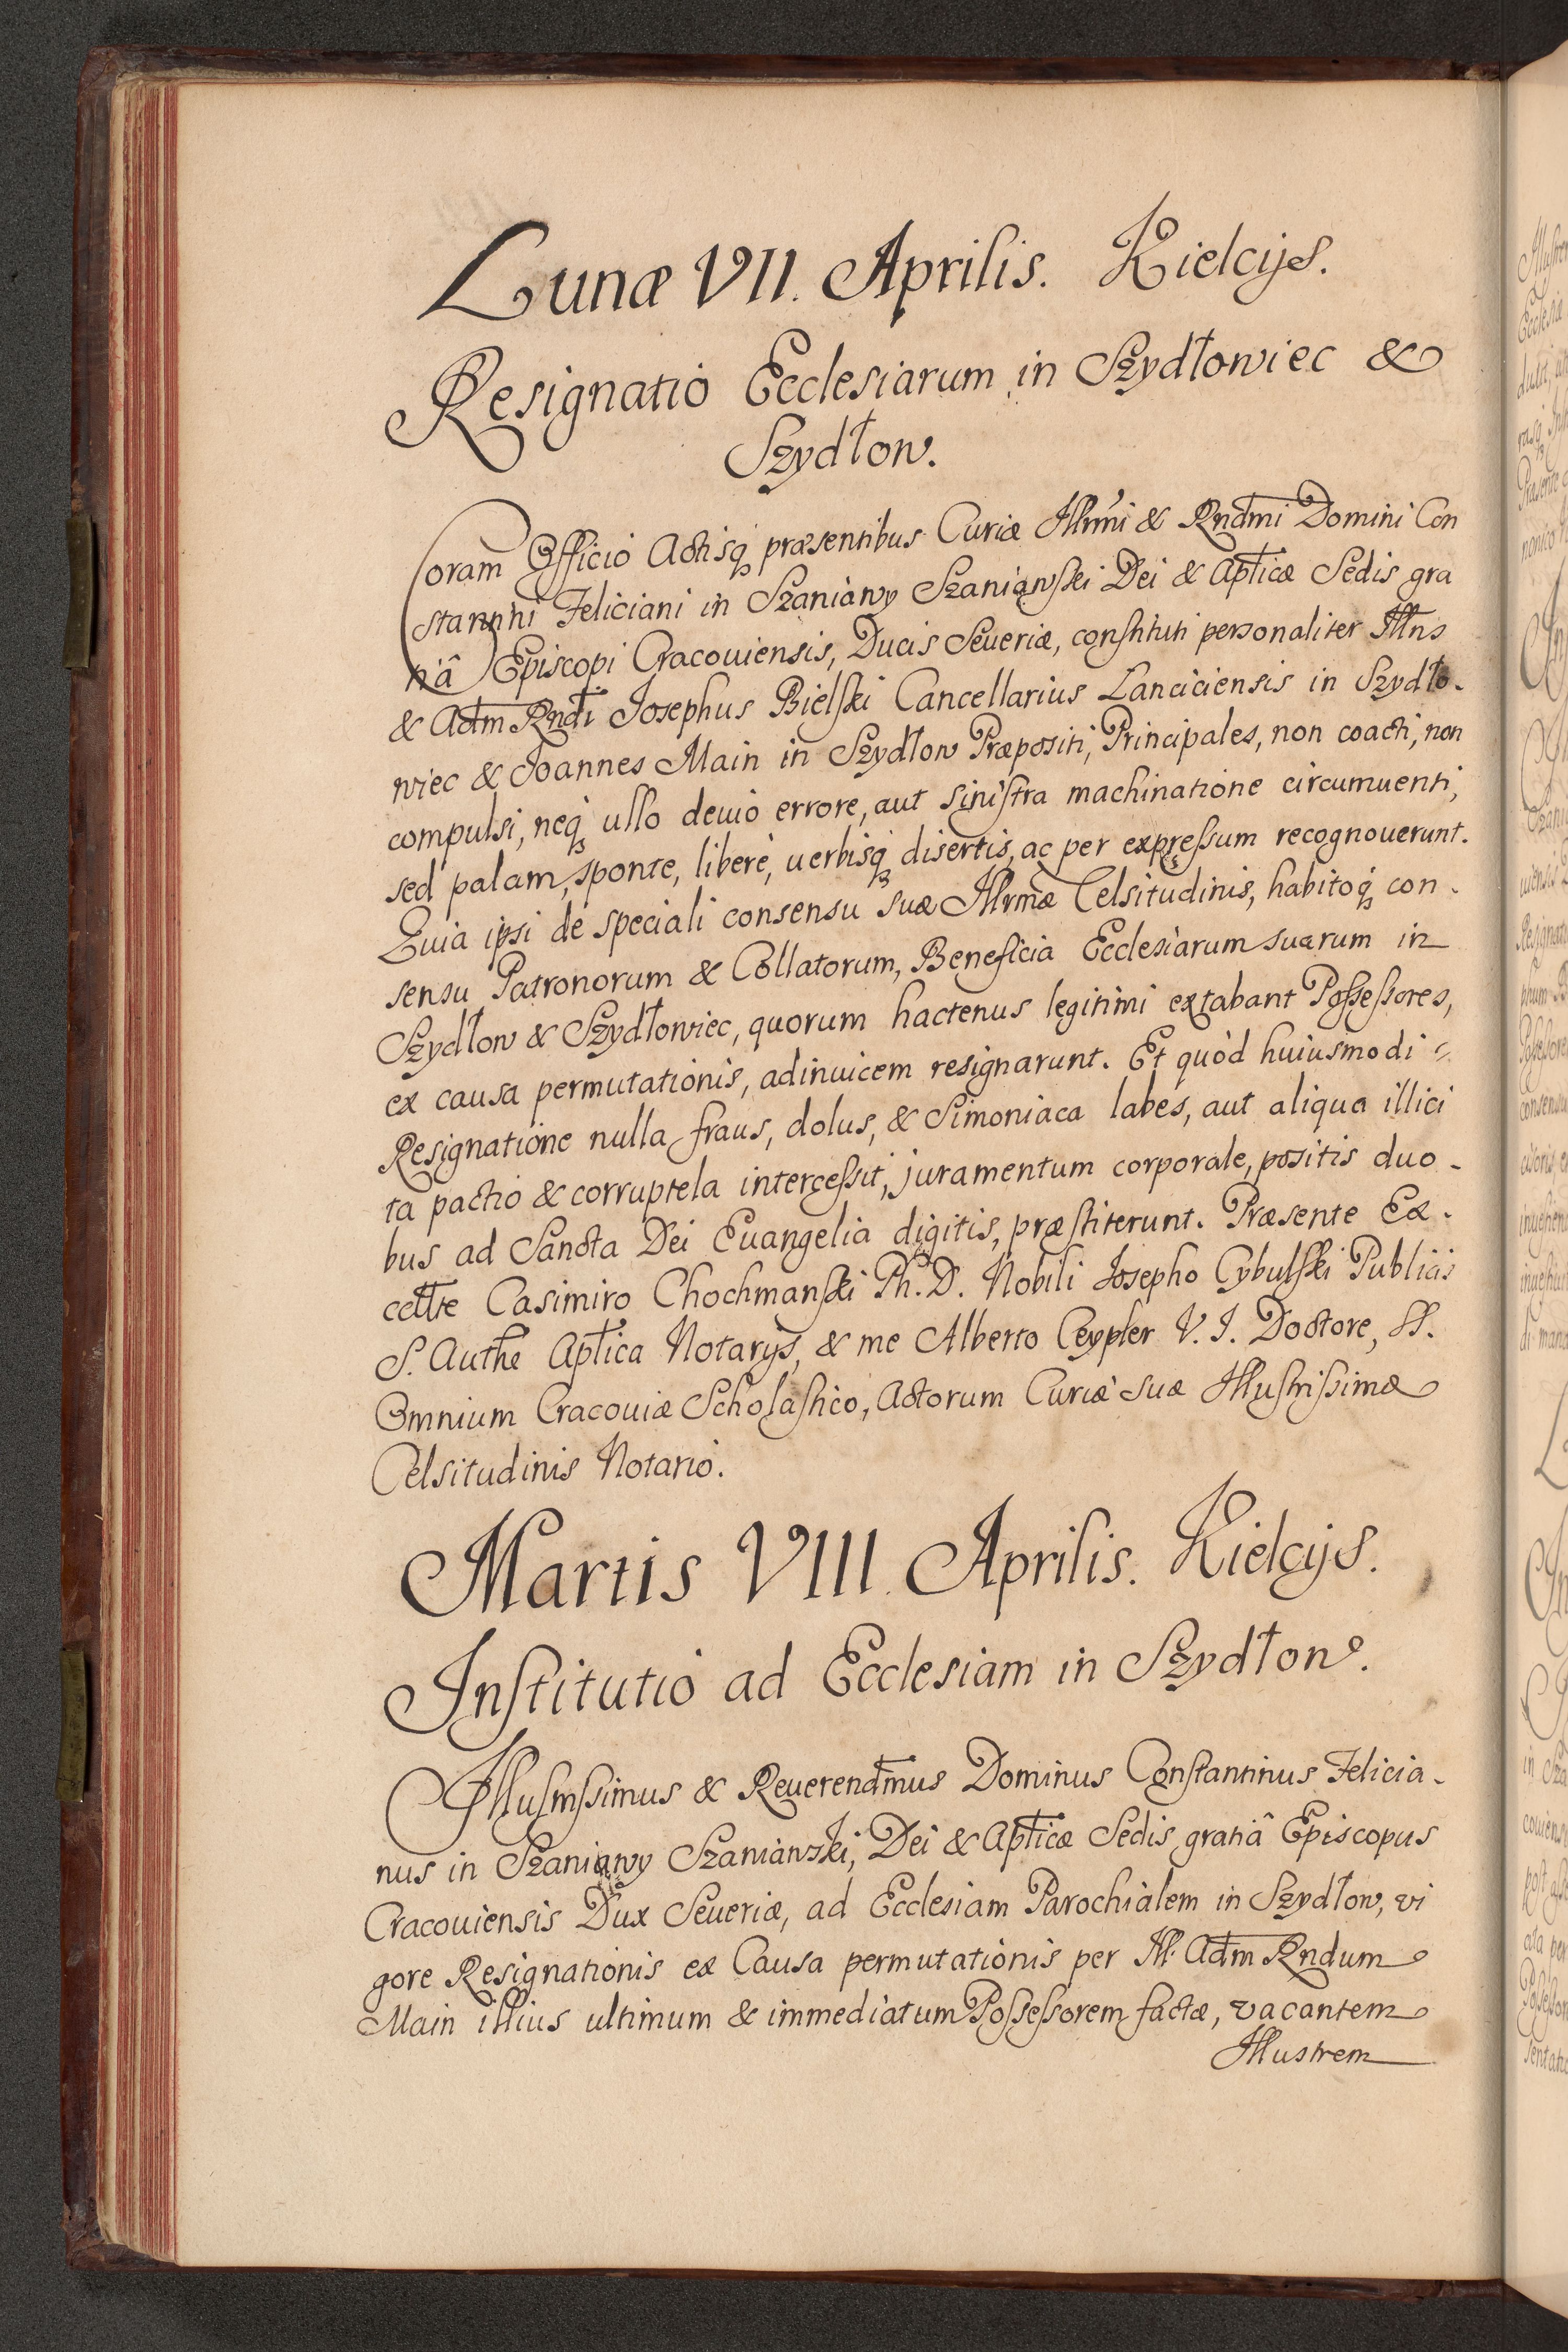 Lunæ VII. Aprilis. Kielcijs.
Resignatio Ecclesiarum in Szydłowiec &
Szydłow.
Coram Officio Actisq₃ præsentibus Curiæ Illrmi & Rndmi Domini Con
stantini Feliciani in Szaniawy Szaniawski Dei & Apticæ Sedis gra
tiâ Episcopi Cracouiensis, Ducis Seueriæ, constituti personaliter Illres
& Adm Rndi Josephus Bielski Cancellarius Lanciciensis in Szydło-
wiec & Joannes Main in Szydłow Præpositi, Principales, non coacti, non
compulsi, neq₃ ullo deuio errore, aut sinistra machinatione circumuenti,
sed palam, sponte, liberè, uerbisq₃ disertis, ac per expressum recognouerunt.
Quia ipsi de speciali consensu suæ Illrmæ Celsitudinis, habitoq₃ con-
sensu Patronorum & Collatorum, Beneficia Ecclesiarum suarum in
Szydłow & Szydłowiec, quorum hactenus legitimi extabant Possessores,
ex causa permutationis, adinuicem resignarunt. Et quòd huiusmodi
Resignatione nulla fraus, dolus, & Simoniaca labes, aut aliqua illici
ta pactio & corruptela intercessit, juramentum corporale, positis duo-
bus ad Sancta Dei Euangelia digitis, præstiterunt. Præsente Ex-
cettre Casimiro Chochmanski Ph. D. Nobili Josepho Cybulski Publicis
S. Authe Aptica Notarijs, & me Alberto Ceypler V. J. Doctore, SS.
Omnium Cracouiæ Scholastico, Actorum Curiæ suæ Illustrissimæ
Celsitudinis Notario.
Martis VIII. Aprilis. Kielcijs.
Institutio ad Ecclesiam in Szydłow.
Illustrissimus & Reuerendmus Dominus Constantinus Felicia-
nus in Szaniawy Szaniawski, Dei & Apticæ Sedis gratiâ Episcopus
Cracouiensis Dux Seueriæ, ad Ecclesiam Parochialem in Szydłow, vi
gore Resignationis ex Causa permutationis per Ill. Adm Rndum
Main illius ultimum & immediatum Possessorem factæ, vacantem
Illustrem